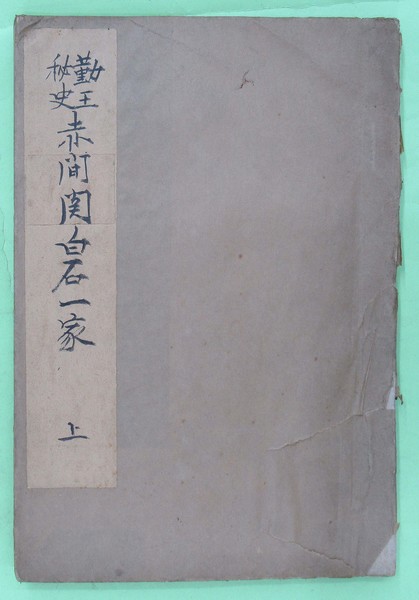 勤王
秘史
赤間関白石一家
上